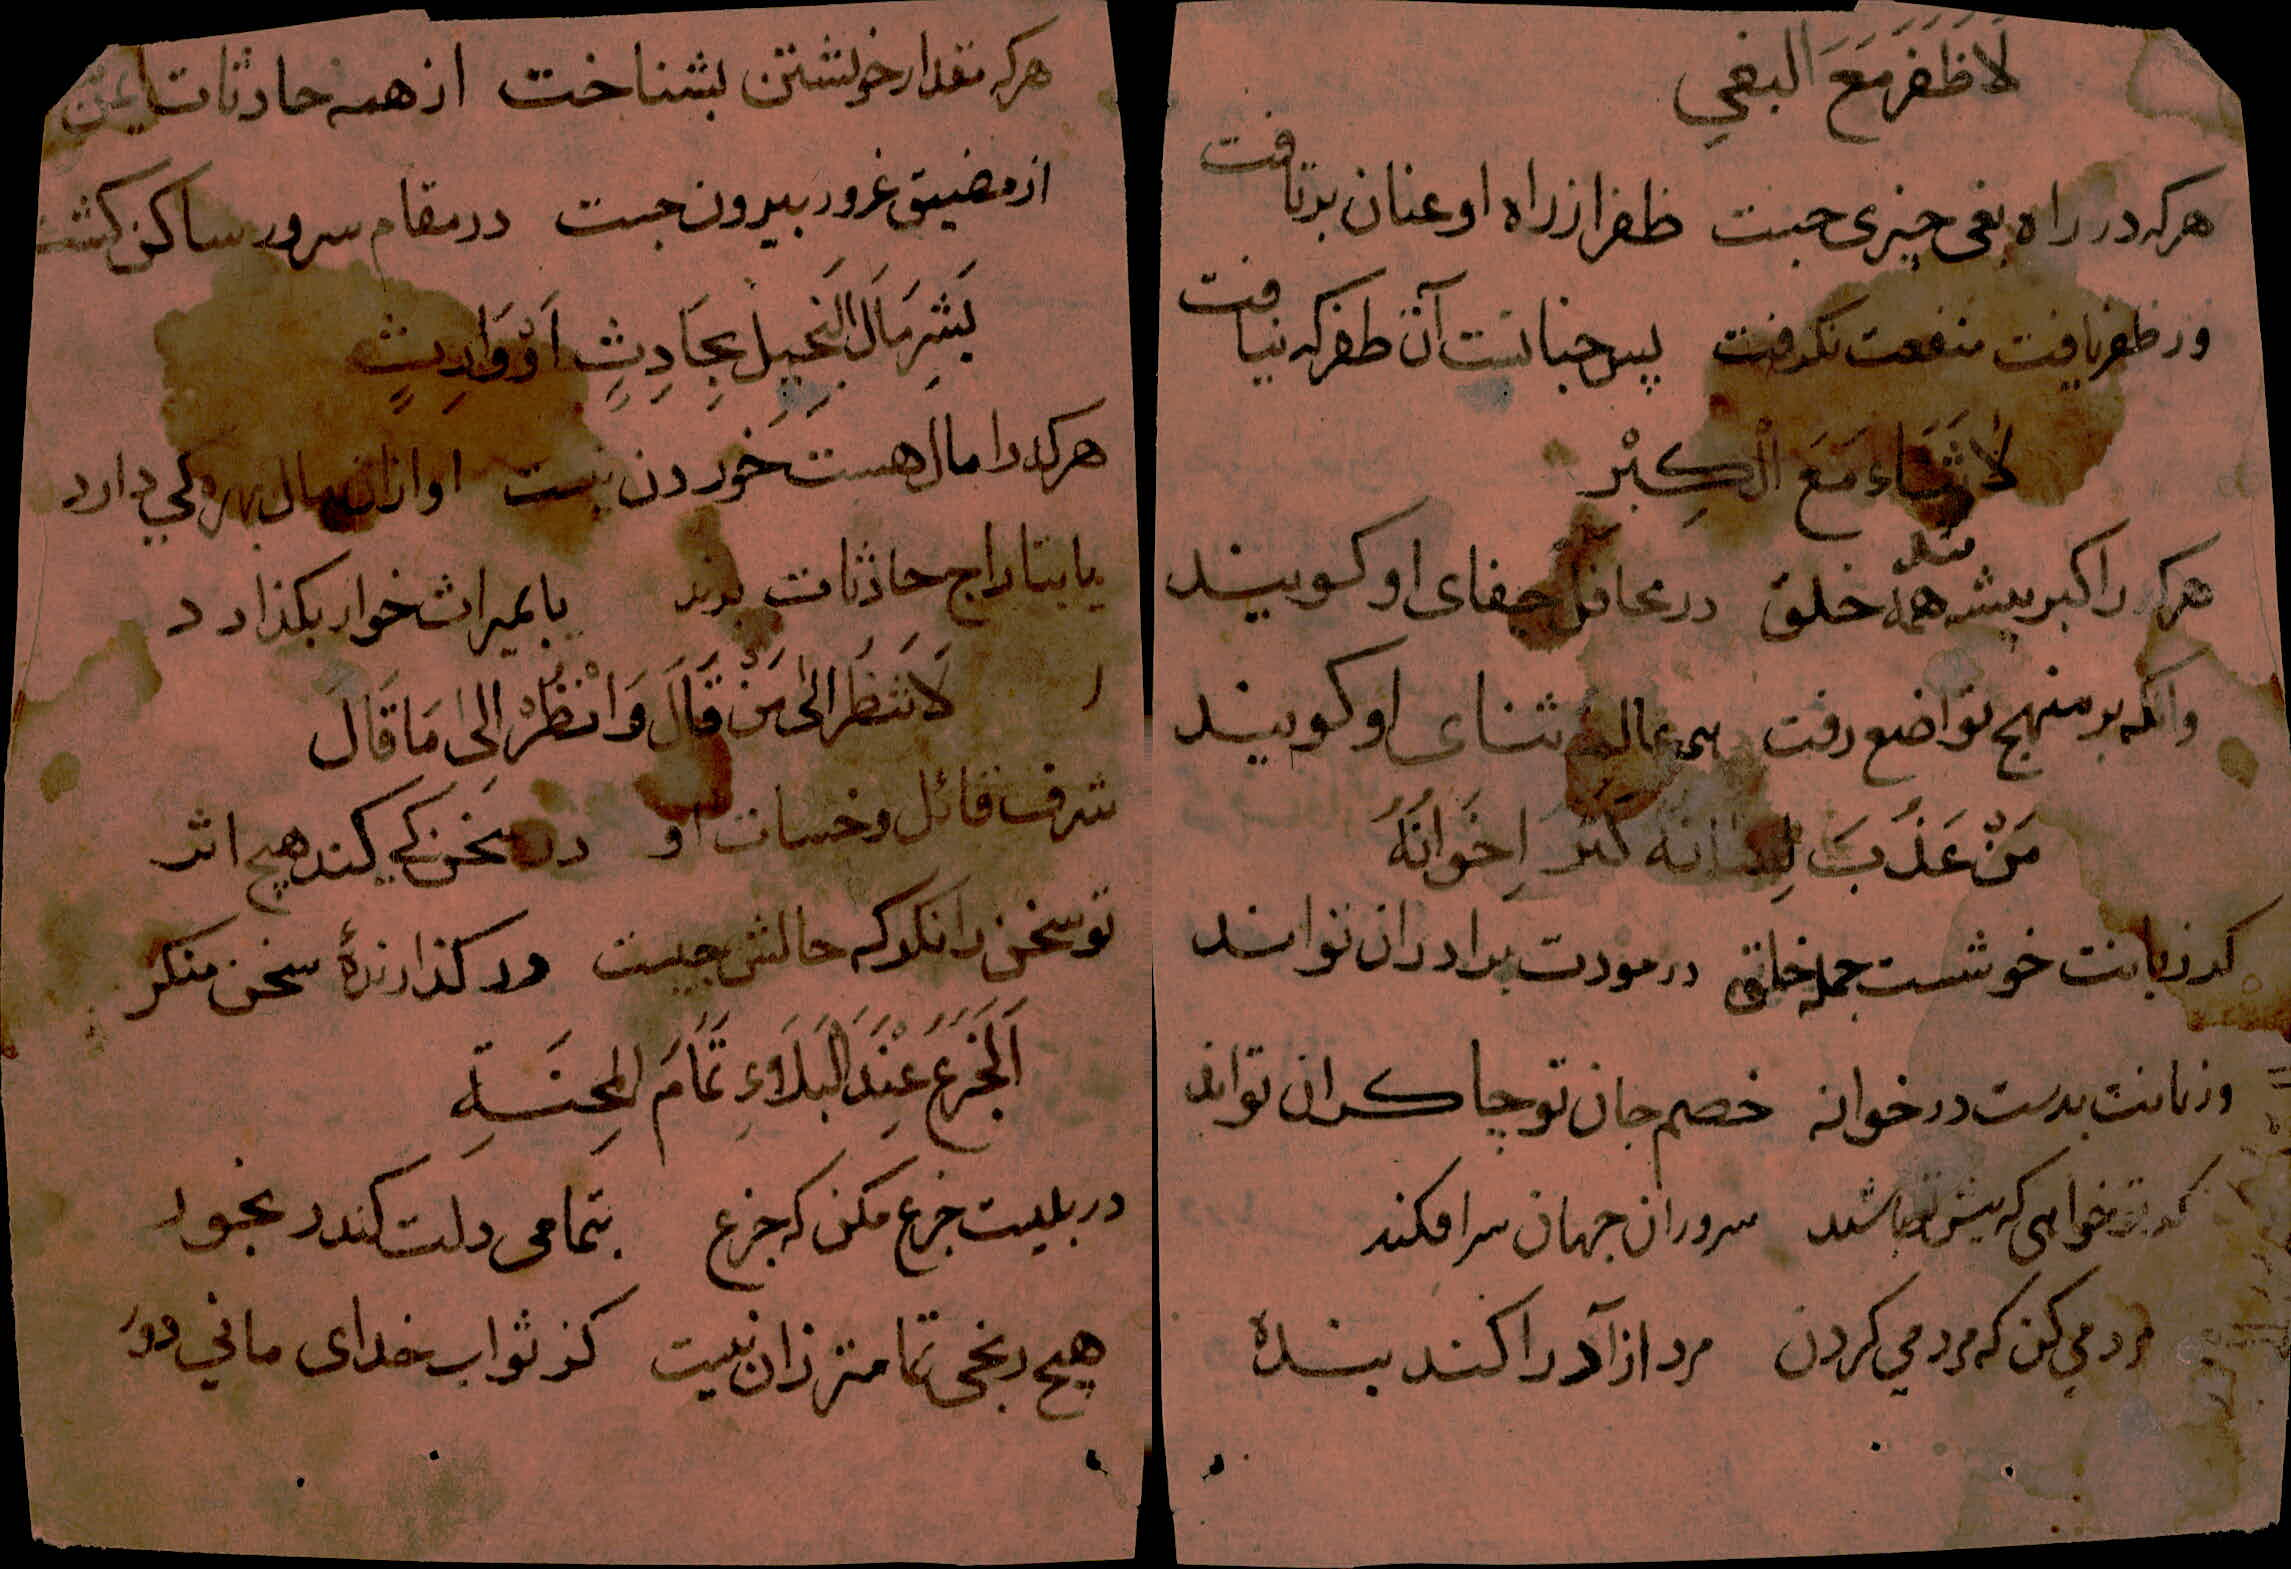 لَا ظَفَرَ مَعَ البغيِ
هرکه در راه بغی چیزی جست ظفر از راه او عنان برتافت
ور ظفر یافت منفعت نکرفت پس چنانست آن ظفر که نیافت
لَا ثَنَاءَ مَعَ الْكِبْر
هرکه را کبر پیشه شد همه خلق در محافل جفای او کویند
وانکه بر منهج تواضع رفت همه عالم ثنای او کویند
مَنْ عَذُبَ لِسَانُهُ كَثُرَ اِخْوَانُهُ
کر زبانت خوشست جمله خلق در مودت برادران تواند
ور زبانت بدست در خوانه خصم جان تو چاکران تواند
کر تو خواهی که پیش تو باشند سروران جهان سرافکند
مردمی کن که مردمی کردن مرد ازآد را کند بندۀ
هرکه مقدار خویشتن بشناخت از همه حادثات ایمن
از مضیق غرور بیرون جست در مقام سرور ساکن کشت
بَشِّرْ مَالَ الْبَخِيلِ بِحَادِثٍ اَوْ وَارِثٍ
هرکه را مال هست خوردن نیست او ازان مال بهره کی دارد
یا بتاراج حادثات برند یا بمیراث خوار بکذارد
لَا تَنظُر اِلىٰ مَنْ قَالَ وَانْظُرْ اِلىٰ مَا قَالَ
شرف قائل و خسات او در سخن کی کند هیچ اثر
تو سخن را نکر که حالش چیست در کذارندۀ سخن منکر
اَلْجَزَعُ عِنْدَ الْبَلَاءِ تَمَامُ الْمِحْنَةِ
در بلیت جزع مکن که جزع بتمامی دلت کند رنجور
هیچ رنجی تمامتر زان نیست کز ثواب خدای مانی دور